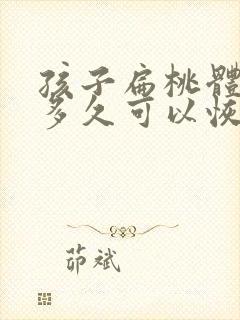 孩子扁桃體
多久可以恢
茆斌